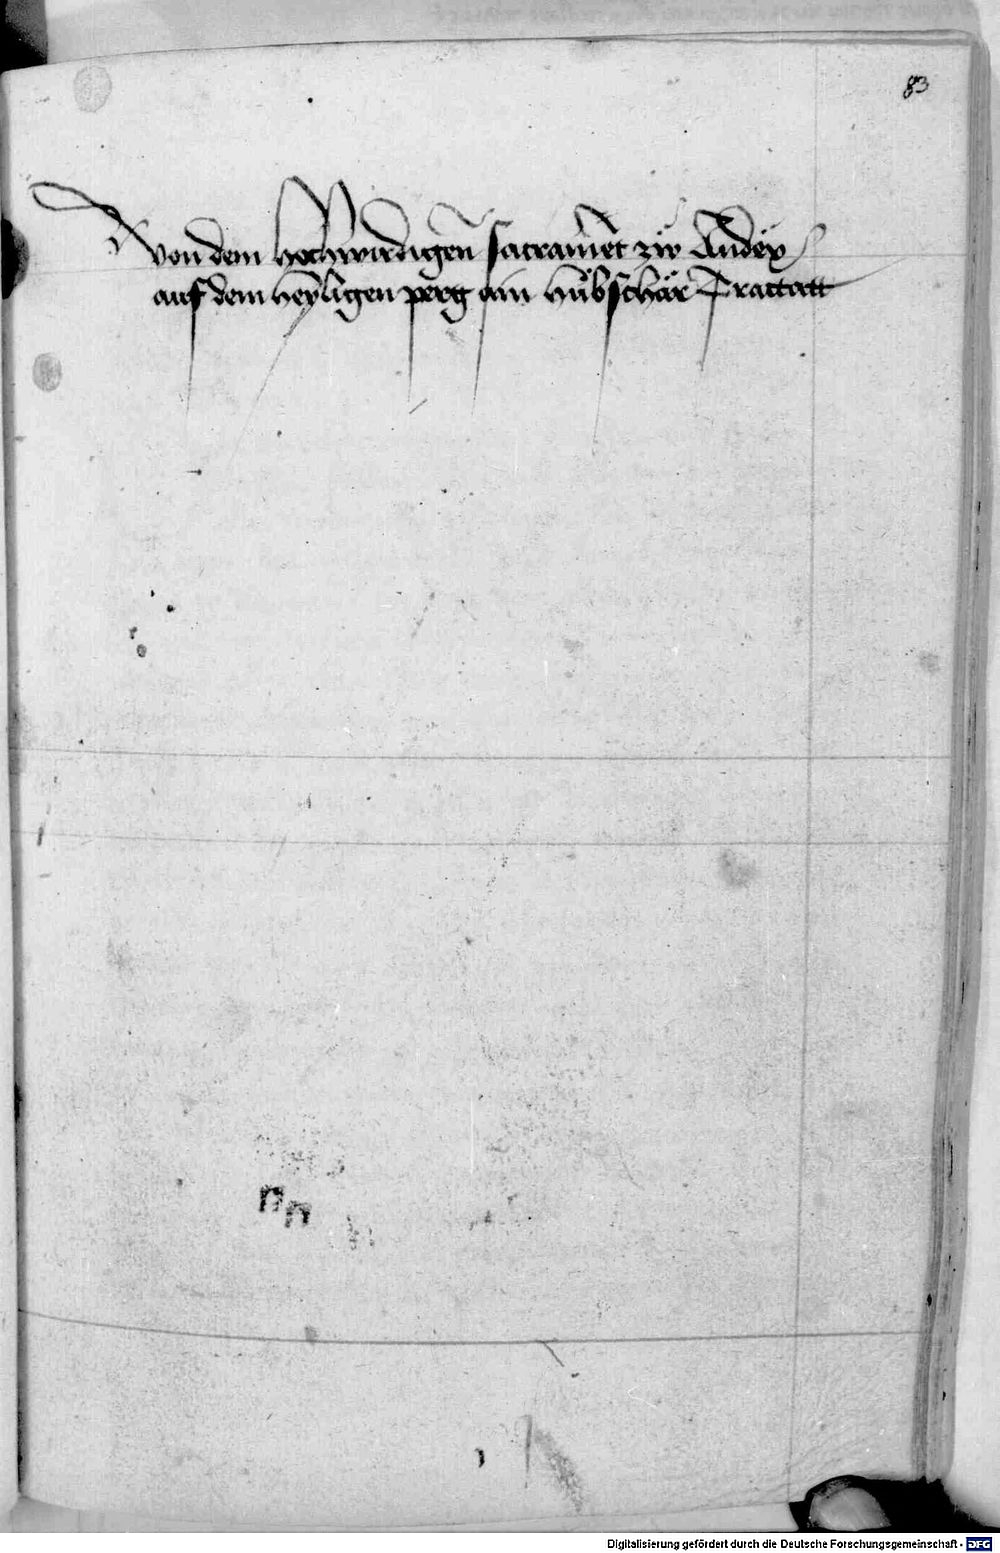 83
Von dem hochwirdigen̄ sacramēt zẅ Andëx
auf dem heyligen perg ain hübschär Tractatt
nn
Digitalisierung gefördert durch die Deutsche Forschungsgemeinschaft - DFG